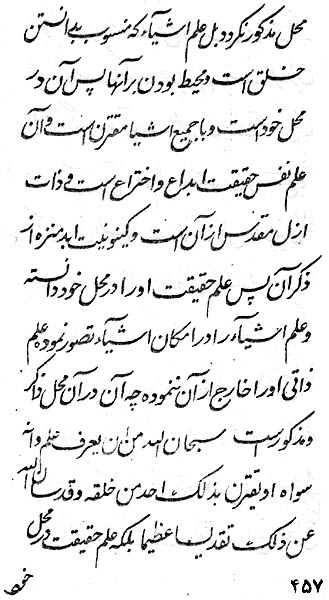 محل مذکور نکردد بل علم اشیآء که منسوب بدانستن
خلق است و محیط بودن برآنها پس آن در
محل خود است و با جمیع اشیا مقترن است و آن
علم نفس حقیقت ابداع و اختراع است و ذات
ازل مقدس از آن است و کینونیت ابد منزه از
ذکر آن پس علم حقیقت او را در محل خود دانسته
و علم اشیآء را در امکان اشیآء تصور نموده علم
ذاتی او را خارج از آن ننموده چه آن در آن محل ذاکر
و مذکور است سبحان الله من ان یعرف علم ذاته
سواه او یقترن بذلک احد من خلقه و قدسان الله
عن ذلک تقدیسا عظیما بلکه علم حقیقت در محل
خود
۴۵۷